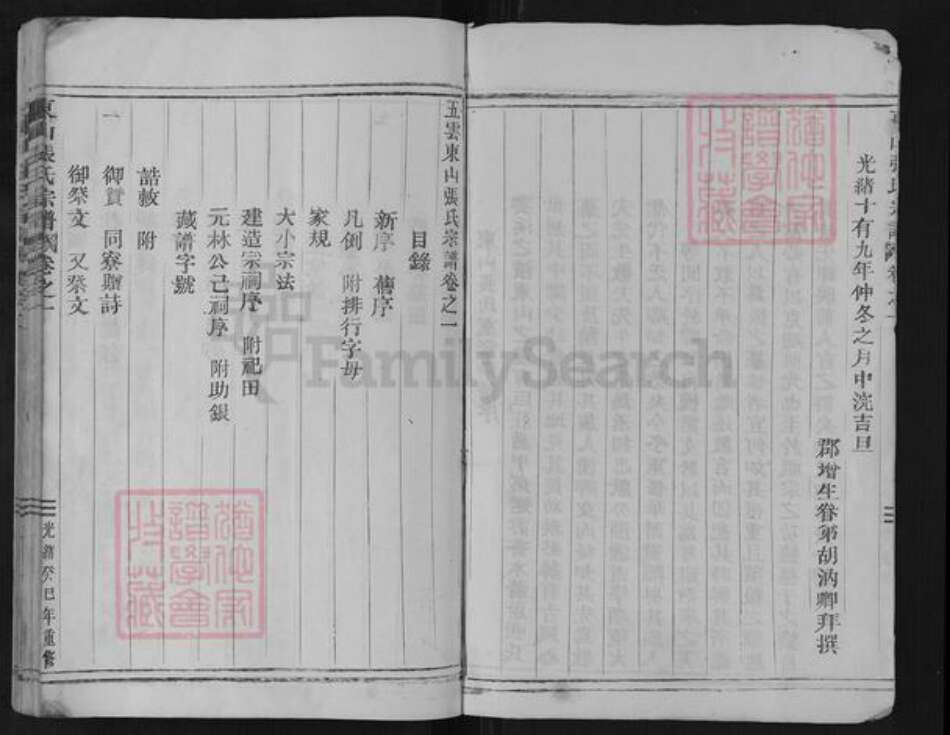 光緒十有九年仲冬之月中浣吉旦
郡增生眷弟胡汭卿拜撰
五雲東山張氏宗譜卷之一
目錄
新序 舊序
凡例 附排行字母
家規
大小宗法
建造宗祠序 附祀田
元林公己祠序 附助銀
藏譜字號
誥敕 附
御賛 同寮贈詩
御祭文 又祭文
東山張氏宗譜 卷之一
光緒癸巳年重修
FamilySearch